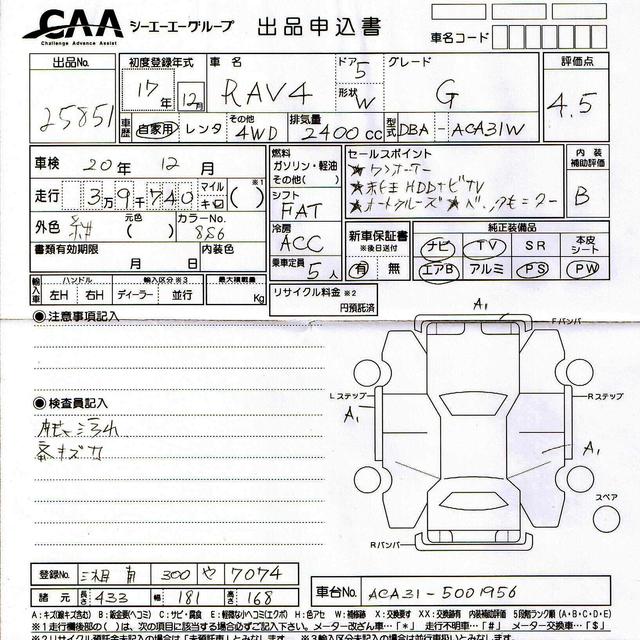 CAA シーエーエーグループ 出品申込書
Challenge Advance Assist
車名コード
出品No. 25851
初度登録年式 17年 12月
車名 RAV4
ドア 5
形状 W
グレード G
評価点 4.5
車歴 自家用 レンタ その他 4WD
排気量 2400cc
型式 DBA-ACA31W
車検 20年 12月
燃料 ガソリン・軽油 その他( )
セールスポイント
★ワンオーナー
HDDナビTV
内装補助評価 B
走行 3万9千740 マイル キロ ( )※1
シフト FAT
外色 元色( ) カラーNo. 8S6
冷房 ACC
新車保証書 ※後日送付 有 無
純正装備品
ナビ TV SR 本皮シート
エアB アルミ PS PW
書類有効期限 月 日
内装色
乗車定員 5人
輸入車 ハンドル 左H 右H
輸入区分※3 ディーラー 並行
最大積載量 Kg
リサイクル料金※2 円預託済
◉注意事項記入
A1
Fバンパ
Lステップ
Rステップ
A1
A1
◉検査員記入
キズ
スペア
Rバンパ
登録No. 300 や 7074
諸元 長さ 433 幅 181 高さ 168
車台No. ACA31-5001956
A:キズ(線キズ含む) B:鈑金要(ヘコミ) C:サビ・腐食 E:軽微な凹(ヘコミ)(エクボ) H:色アセ W:補修跡 X:交換要す XX:交換跡有 内装補助評価 5段階ランク順(A・B・C・D・E)
※1走行欄後部の( )は、次の項目に該当する場合必ずご記入下さい。メーター改ざん車…「*」 走行不明車…「#」 メーター交換車…「$」